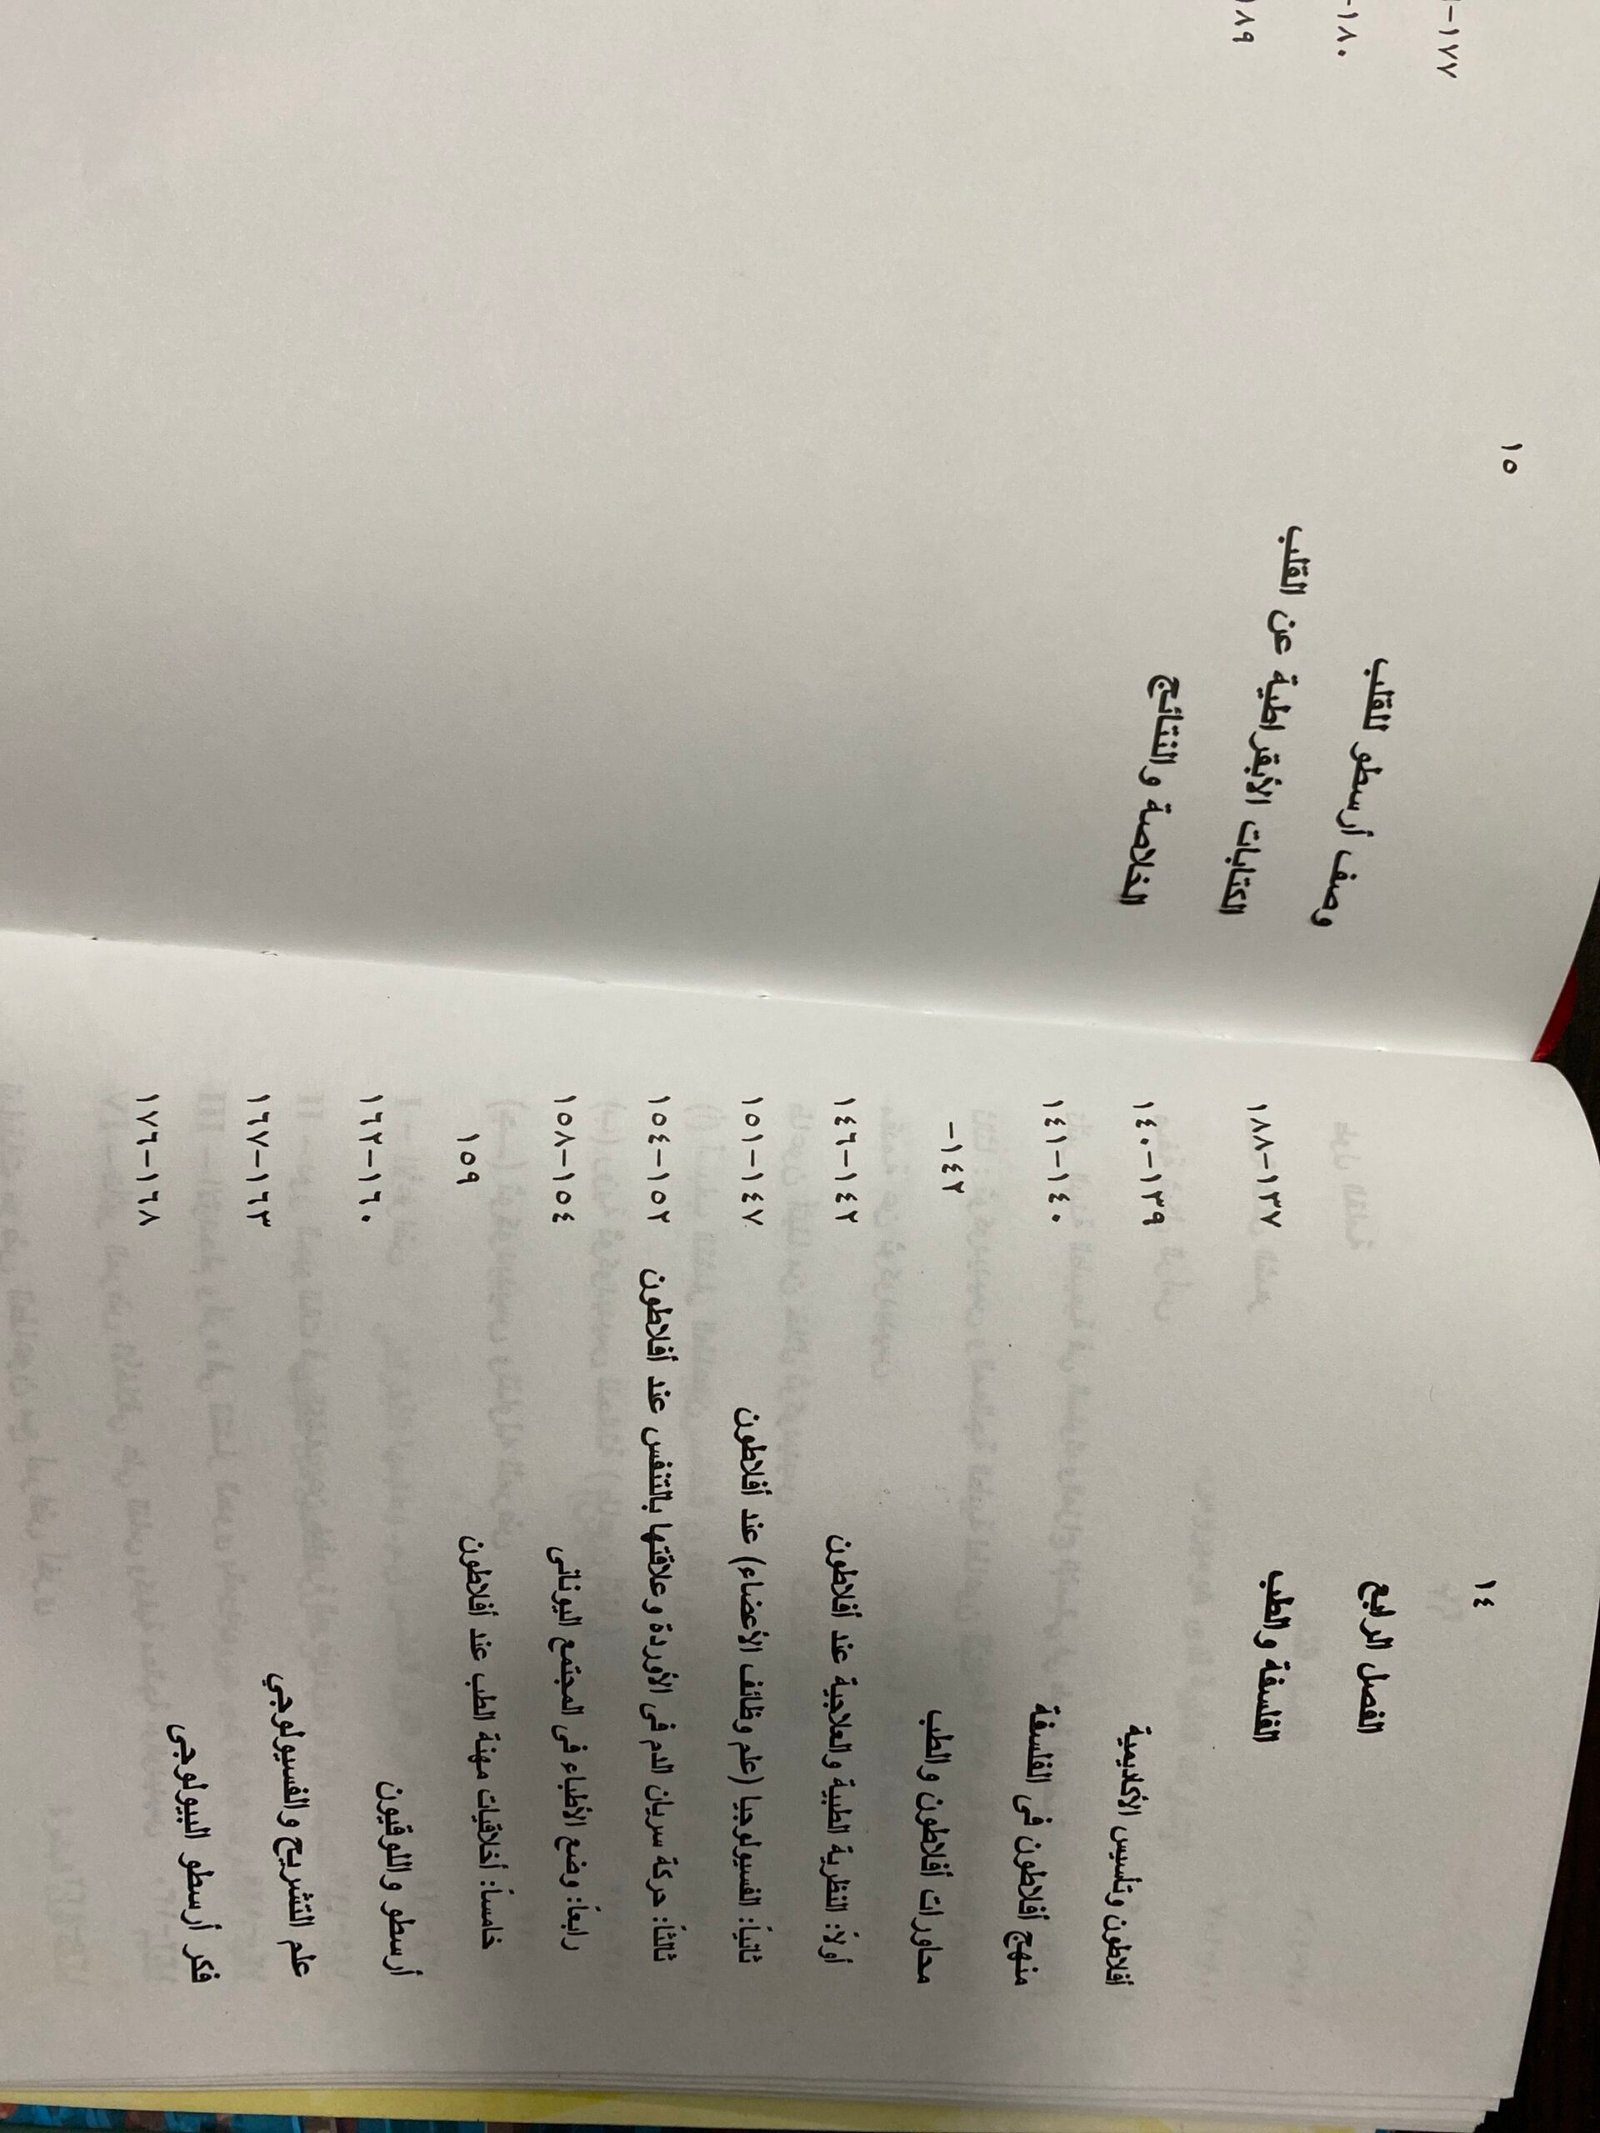 ١٤
الفصل الرابع
الفلسفة والطب ١٣٧-١٨٨
أفلاطون وتأسيس الأكاديمية ١٣٩-١٤٠
منهج أفلاطون فى الفلسفة ١٤٠-١٤١
محاورات أفلاطون والطب ١٤٢-
أولاً: النظرية الطبية والعلاجية عند أفلاطون ١٤٢-١٤٦
ثانياً: الفسيولوجيا (علم وظائف الأعضاء) عند أفلاطون ١٤٧-١٥١
ثالثاً: حركة سريان الدم فى الأوردة وعلاقتها بالتنفس عند أفلاطون ١٥٢-١٥٤
رابعاً: وضع الأطباء فى المجتمع اليونانى ١٥٤-١٥٨
خامساً: أخلاقيات مهنة الطب عند أفلاطون ١٥٩
أرسطو واللوقيون ١٦٠-١٦٢
علم التشريح والفسيولوجي ١٦٣-١٦٧
فكر أرسطو البيولوجى ١٦٨-١٧٦
١٥
وصف أرسطو للقلب ١٧٧-
الكتابات الأبقراطية عن القلب ١٨٠-
الخلاصة والنتائج ١٨٩